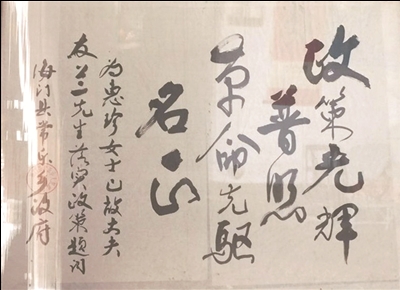 政策光輝
普照
革命先驅
名正
为惠珍女士已故丈夫
友兰先生落实政策题词
海门县常乐乡政府